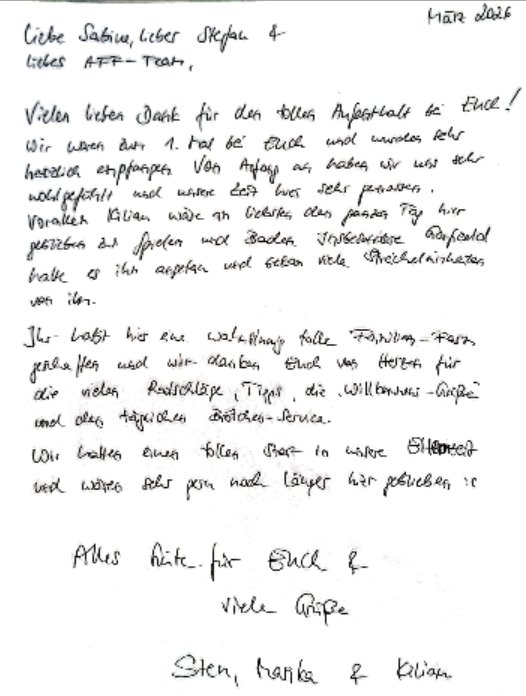 März 2026
Liebe Sabine, lieber Stefan &
liebes AFF-Team,
Vielen lieben Dank für den tollen Aufenthalt bei Euch!
Wir waren zum 1. Mal bei Euch und wurden sehr
herzlich empfangen. Von Anfang an haben wir uns sehr
wohlgefühlt und unsere Zeit hier sehr genossen.
Vorallem Kilian wäre am liebsten den ganzen Tag hier
geblieben zum Spielen und Baden. Insbesondere Garfield
hatte es ihm angetan und bekam viele Streicheleinheiten
von ihm.
Ihr habt hier eine wahnsinnig tolle Familien-Farm
geschaffen und wir danken Euch von Herzen für
die vielen Ratschläge, Tipps, die "Willkommens-Grüße"
und den täglichen Brötchen-Service.
Wir hatten einen tollen Start in unsere Elternzeit
und wären sehr gern noch länger hier geblieben :)
Alles Gute für Euch &
viele Grüße
Sten, Marika & Kilian